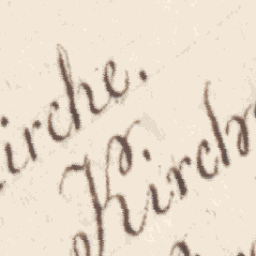 irche.
Kirch